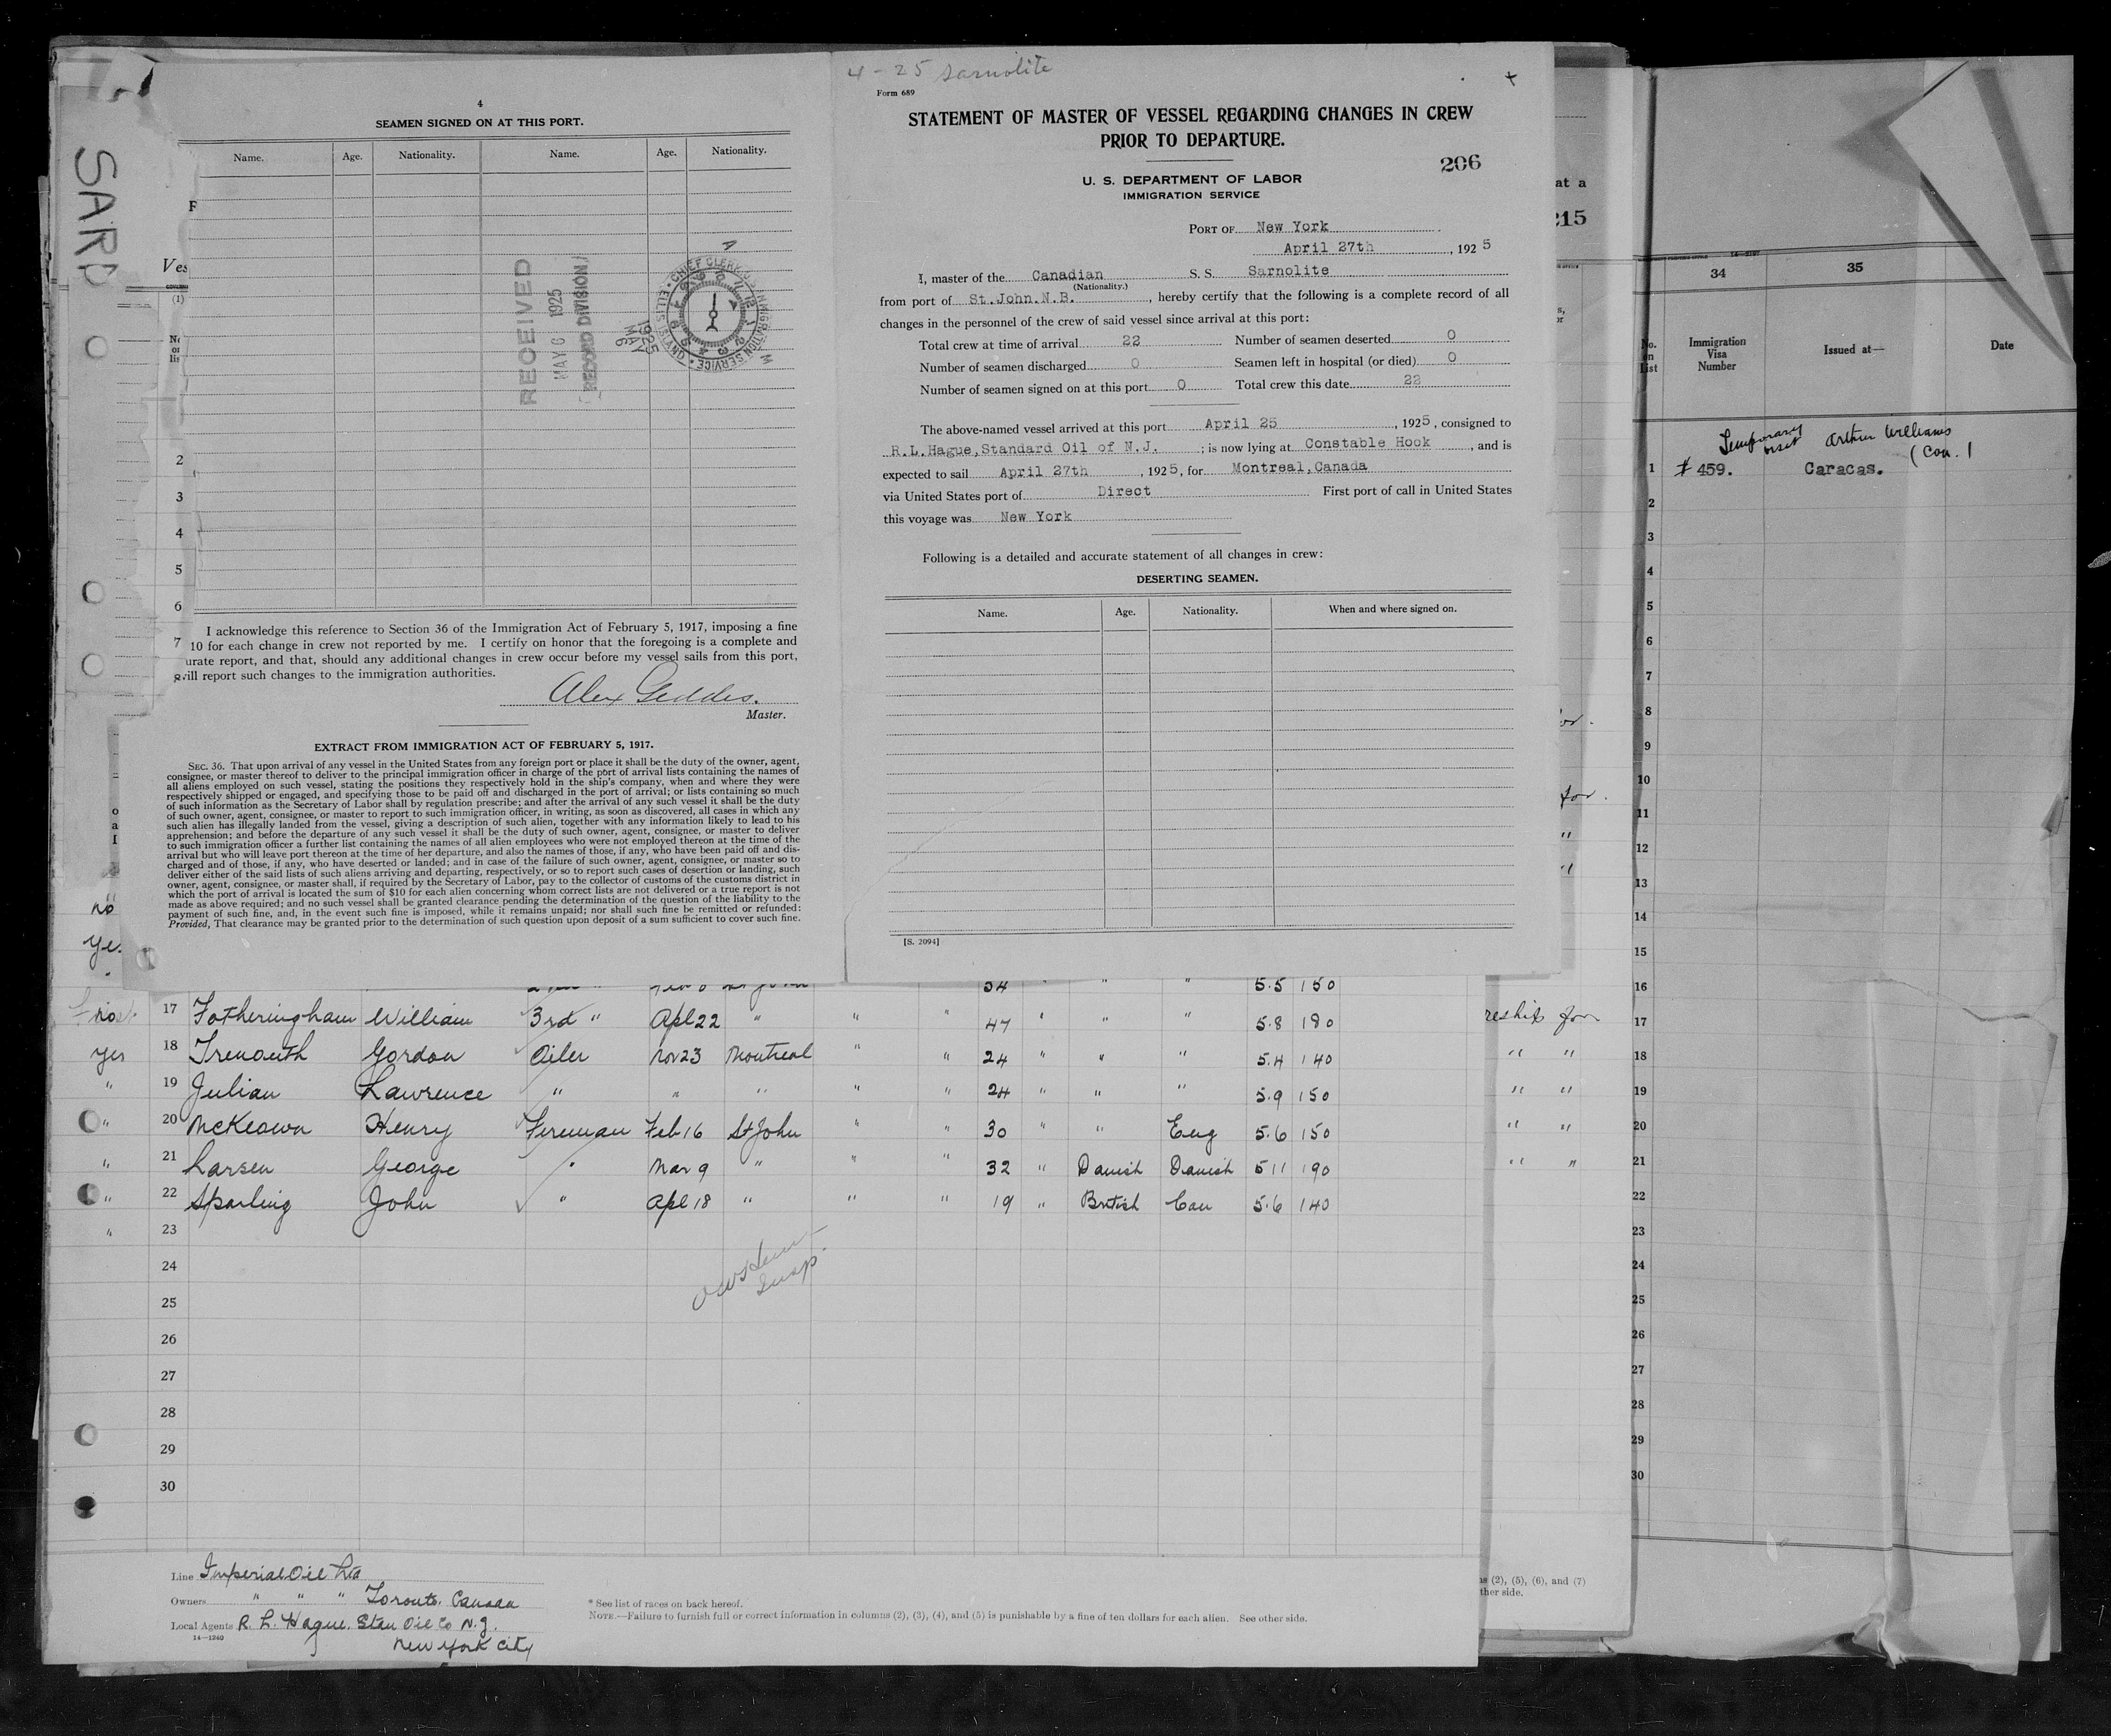 SARD
4
SEAMEN SIGNED ON AT THIS PORT.
Name. Age. Nationality. Name. Age. Nationality.
RECEIVED
MAY 6 1925
RECORD DIVISION
CHIEF CLERK U.S. IMMIGRATION SERVICE ELLIS ISLAND
1925
MAY
6
F
Ves
(1)
2
3
4
5
6
7
I acknowledge this reference to Section 36 of the Immigration Act of February 5, 1917, imposing a fine
10 for each change in crew not reported by me. I certify on honor that the foregoing is a complete and
urate report, and that, should any additional changes in crew occur before my vessel sails from this port,
will report such changes to the immigration authorities.
Alex Geddes.
Master.
EXTRACT FROM IMMIGRATION ACT OF FEBRUARY 5, 1917.
SEC. 36. That upon arrival of any vessel in the United States from any foreign port or place it shall be the duty of the owner, agent,
consignee, or master thereof to deliver to the principal immigration officer in charge of the port of arrival lists containing the names of
all aliens employed on such vessel, stating the positions they respectively hold in the ship's company, when and where they were
respectively shipped or engaged, and specifying those to be paid off and discharged in the port of arrival; or lists containing so much
of such information as the Secretary of Labor shall by regulation prescribe; and after the arrival of any such vessel it shall be the duty
of such owner, agent, consignee, or master to report to such immigration officer, in writing, as soon as discovered, all cases in which any
such alien has illegally landed from the vessel, giving a description of such alien, together with any information likely to lead to his
apprehension; and before the departure of any such vessel it shall be the duty of such owner, agent, consignee, or master to deliver
to such immigration officer a further list containing the names of all alien employees who were not employed thereon at the time of the
arrival but who will leave port thereon at the time of her departure, and also the names of those, if any, who have been paid off and dis-
charged and of those, if any, who have deserted or landed; and in case of the failure of such owner, agent, consignee, or master so to
deliver either of the said lists of such aliens arriving and departing, respectively, or so to report such cases of desertion or landing, such
owner, agent, consignee, or master shall, if required by the Secretary of Labor, pay to the collector of customs of the customs district in
which the port of arrival is located the sum of $10 for each alien concerning whom correct lists are not delivered or a true report is not
made as above required; and no such vessel shall be granted clearance pending the determination of the question of the liability to the
payment of such fine, and, in the event such fine is imposed, while it remains unpaid; nor shall such fine be remitted or refunded:
Provided, That clearance may be granted prior to the determination of such question upon deposit of a sum sufficient to cover such fine.
4-25 Sarnolite
Form 689
STATEMENT OF MASTER OF VESSEL REGARDING CHANGES IN CREW
PRIOR TO DEPARTURE.
206
U. S. DEPARTMENT OF LABOR
IMMIGRATION SERVICE
PORT OF New York
April 27th, 1925
I, master of the Canadian S. S. Sarnolite
(Nationality.)
from port of St.John.N.B., hereby certify that the following is a complete record of all
changes in the personnel of the crew of said vessel since arrival at this port:
Total crew at time of arrival 22 Number of seamen deserted 0
Number of seamen discharged 0 Seamen left in hospital (or died) 0
Number of seamen signed on at this port 0 Total crew this date 22
The above-named vessel arrived at this port April 25, 1925, consigned to
R.L.Hague,Standard Oil of N.J.; is now lying at Constable Hook, and is
expected to sail April 27th, 1925, for Montreal,Canada
via United States port of Direct First port of call in United States
this voyage was New York
Following is a detailed and accurate statement of all changes in crew:
DESERTING SEAMEN.
Name. Age. Nationality. When and where signed on.
[S. 2094]
at a
215
34 35
No. on List Immigration Visa Number Issued at— Date
Temporary visit Arthur Williams
(Con.)
1 # 459. Caracas.
2
3
4
5
6
7
8
9
10
11
12
13
14
15
16
17
18
19
20
21
22
23
24
25
26
27
28
29
30
no
34 " " " 5.5 150
17 Fotheringham William 3rd " Apl 22 " " " 47 " " " 5.8 180 reship for
yes 18 Tremouth Gordon Oiler Nov 23 Montreal " " 24 " " " 5.4 140 " "
" 19 Julian Lawrence " " " " " 24 " " " 5.9 150 " "
" 20 McKeown Henry Fireman Feb 16 St John " " 30 " " Eng 5.6 150 " "
" 21 Larsen George " Mar 9 " " " 32 " Danish Danish 5 11 190 " "
" 22 Sparling John " Apl 18 " " " 19 " British Can 5.6 140
" 23
24
25
26
27
28
29
30
Insp.
Line Imperial Oil Ltd
Owners " " " Toronto, Canada
Local Agents R. L. Hague. Stan Oil Co N.J.
14—1240
New York City
* See list of races on back hereof.
NOTE.—Failure to furnish full or correct information in columns (2), (3), (4), and (5) is punishable by a fine of ten dollars for each alien. See other side.
(2), (5), (6), and (7)
ther side.